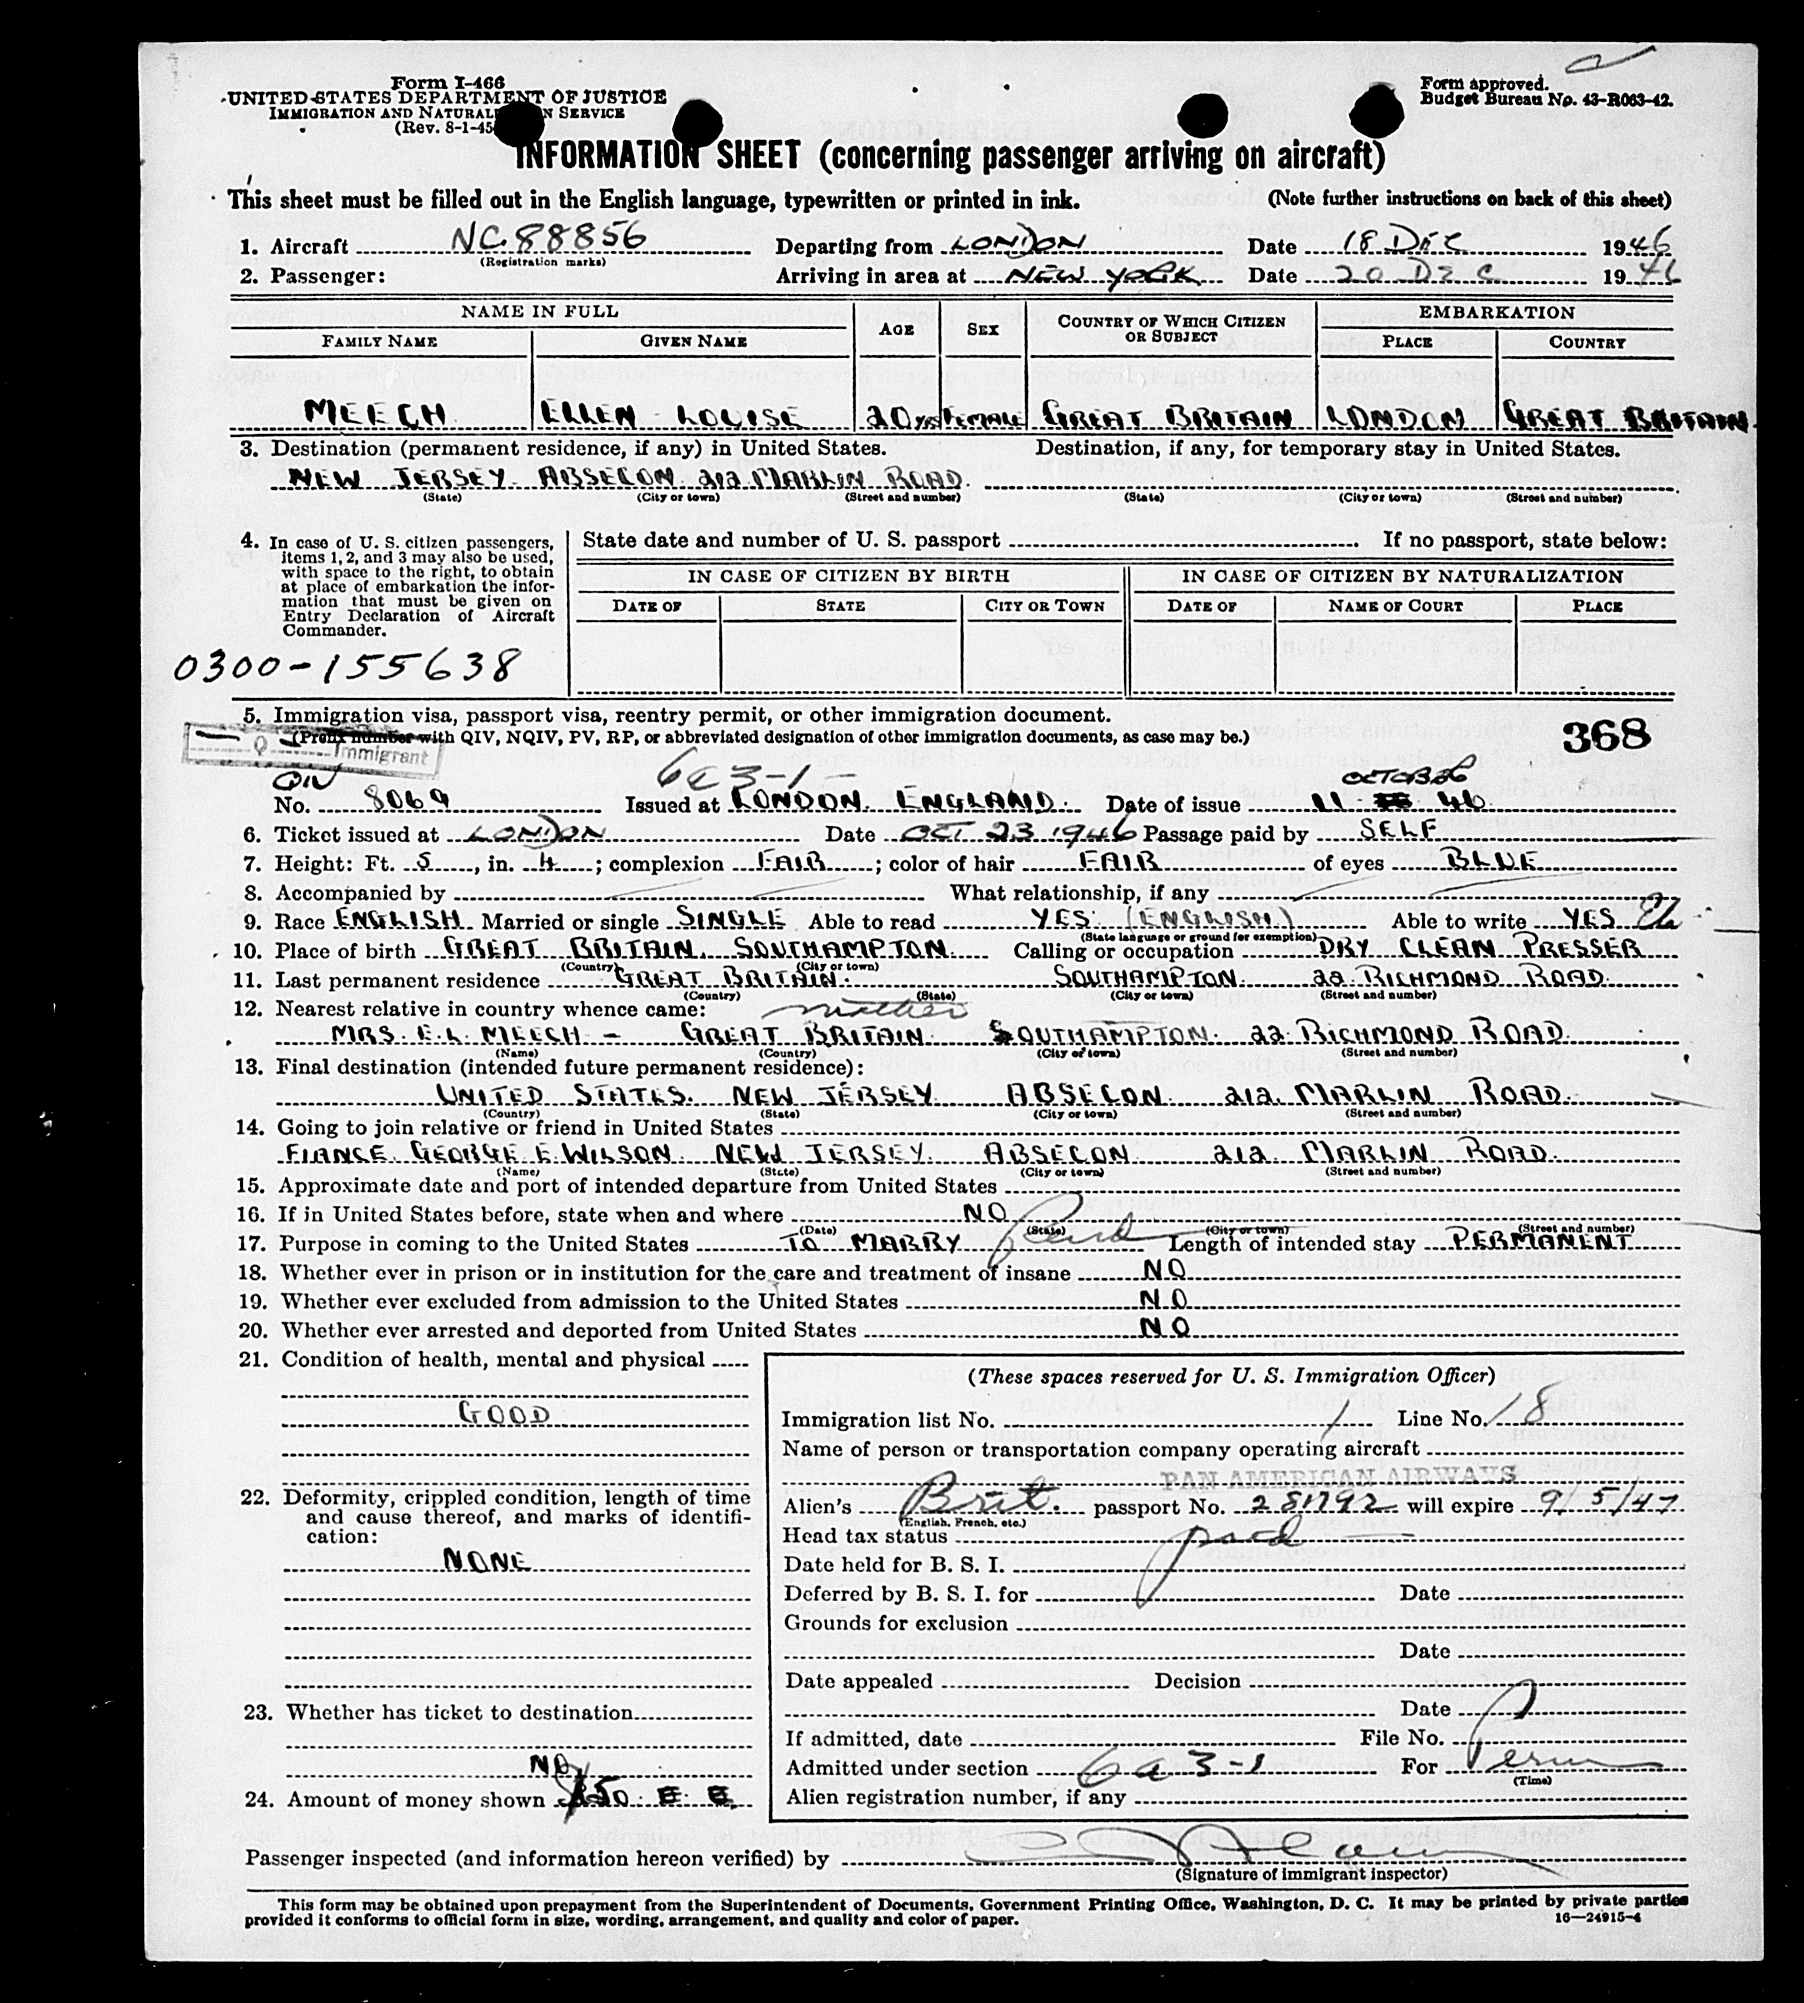 Form I-466
UNITED STATES DEPARTMENT OF JUSTICE
IMMIGRATION AND NATURAL N SERVICE
(Rev. 8-1-45
Form approved.
Budget Bureau No. 43-R063-42.
INFORMATION SHEET (concerning passenger arriving on aircraft)
This sheet must be filled out in the English language, typewritten or printed in ink. (Note further instructions on back of this sheet)
1. Aircraft NC 88856 Departing from LONDON Date 18 DEC 1946
(Registration marks)
2. Passenger: Arriving in area at NEW YORK Date 20 DEC 1946
NAME IN FULL AGE SEX COUNTRY OF WHICH CITIZEN OR SUBJECT EMBARKATION
FAMILY NAME GIVEN NAME PLACE COUNTRY
MEECH ELLEN LOUISE 20 YRS FEMALE GREAT BRITAIN LONDON GREAT BRITAIN
3. Destination (permanent residence, if any) in United States. Destination, if any, for temporary stay in United States.
NEW JERSEY ABSECON 212 MARLIN ROAD
(State) (City or town) (Street and number) (State) (City or town) (Street and number)
4. In case of U. S. citizen passengers,
items 1, 2, and 3 may also be used,
with space to the right, to obtain
at place of embarkation the infor-
mation that must be given on
Entry Declaration of Aircraft
Commander.
State date and number of U. S. passport If no passport, state below:
IN CASE OF CITIZEN BY BIRTH IN CASE OF CITIZEN BY NATURALIZATION
DATE OF STATE CITY OR TOWN DATE OF NAME OF COURT PLACE
0300-155638
5. Immigration visa, passport visa, reentry permit, or other immigration document.
(Prefix number with QIV, NQIV, PV, RP, or abbreviated designation of other immigration documents, as case may be.)
368
Q Immigrant
QIV 6a3-1 OCTOBER
No. 8069 Issued at LONDON ENGLAND. Date of issue 11 46
6. Ticket issued at LONDON Date OCT 23 1946 Passage paid by SELF
7. Height: Ft. 5, in. 4; complexion FAIR; color of hair FAIR of eyes BLUE
8. Accompanied by What relationship, if any
9. Race ENGLISH Married or single SINGLE Able to read YES (ENGLISH) Able to write YES
(State language or ground for exemption)
10. Place of birth GREAT BRITAIN. SOUTHAMPTON. Calling or occupation DRY CLEAN PRESSER
(Country) (City or town)
11. Last permanent residence GREAT BRITAIN. SOUTHAMPTON. 22 RICHMOND ROAD.
(Country) (State) (City or town) (Street and number)
12. Nearest relative in country whence came: mother
MRS. E. L. MEECH - GREAT BRITAIN. SOUTHAMPTON. 22 RICHMOND ROAD.
(Name) (Country) (City or town) (Street and number)
13. Final destination (intended future permanent residence):
UNITED STATES. NEW JERSEY ABSECON 212 MARLIN ROAD.
(Country) (State) (City or town) (Street and number)
14. Going to join relative or friend in United States
FIANCE. GEORGE E. WILSON. NEW JERSEY. ABSECON 212 MARLIN ROAD.
(Name) (State) (City or town) (Street and number)
15. Approximate date and port of intended departure from United States
16. If in United States before, state when and where NO
(Date) (State) (City or town) (Street and number)
17. Purpose in coming to the United States TO MARRY Length of intended stay PERMANENT
18. Whether ever in prison or in institution for the care and treatment of insane NO
19. Whether ever excluded from admission to the United States NO
20. Whether ever arrested and deported from United States NO
21. Condition of health, mental and physical
GOOD
22. Deformity, crippled condition, length of time
and cause thereof, and marks of identifi-
cation:
NONE
23. Whether has ticket to destination
NO
24. Amount of money shown
(These spaces reserved for U. S. Immigration Officer)
Immigration list No. 1 Line No. 18
Name of person or transportation company operating aircraft
PAN AMERICAN AIRWAYS
Alien's Brit. passport No. 281792 will expire 9/5/47
(English, French, etc.)
Head tax status paid
Date held for B. S. I.
Deferred by B. S. I. for Date
Grounds for exclusion
Date
Date appealed Decision
Date
If admitted, date File No.
Admitted under section 6a3-1 For Perm
(Time)
Alien registration number, if any
Passenger inspected (and information hereon verified) by
(Signature of immigrant inspector)
This form may be obtained upon prepayment from the Superintendent of Documents, Government Printing Office, Washington, D. C. It may be printed by private parties
provided it conforms to official form in size, wording, arrangement, and quality and color of paper. 16—24915-4